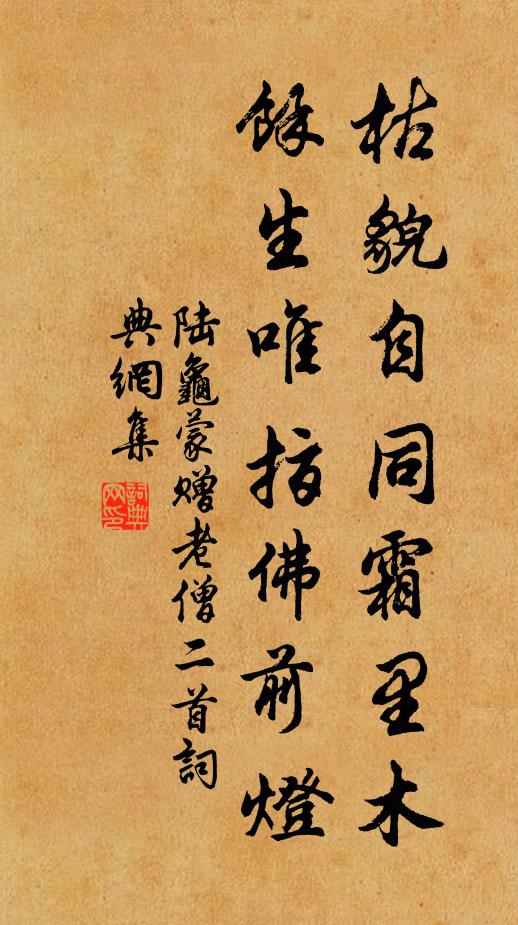 枯貌自同霜里木
餘生唯指佛前燈
陆龜蒙赠老僧二首詞
典網集
詞典
网印